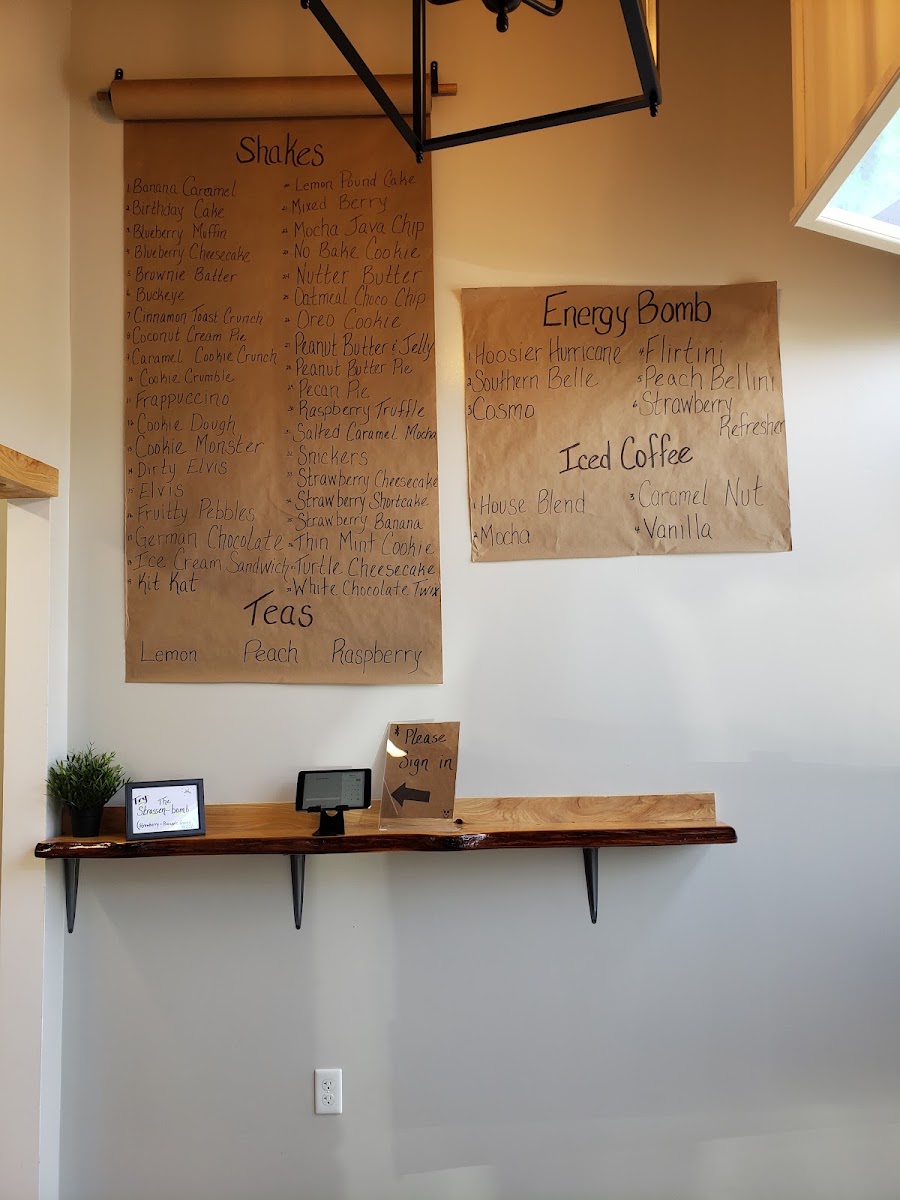 Shakes
1 Banana Caramel
2 Birthday Cake
3 Blueberry Muffin
4 Blueberry Cheesecake
5 Brownie Batter
6 Buckeye
7 Cinnamon Toast Crunch
8 Coconut Cream Pie
9 Caramel Cookie Crunch
10 Cookie Crumble
11 Frappuccino
12 Cookie Dough
13 Cookie Monster
14 Dirty Elvis
15 Elvis
16 Fruitty Pebbles
17 German Chocolate
18 Ice Cream Sandwich
19 Kit Kat
20 Lemon Pound Cake
21 Mixed Berry
22 Mocha Java Chip
23 No Bake Cookie
24 Nutter Butter
25 Oatmeal Choco Chip
26 Oreo Cookie
27 Peanut Butter & Jelly
28 Peanut Butter Pie
29 Pecan Pie
30 Raspberry Truffle
31 Salted Caramel Mocha
32 Snickers
33 Strawberry Cheesecake
34 Strawberry Shortcake
35 Strawberry Banana
36 Thin Mint Cookie
37 Turtle Cheesecake
38 White Chocolate Twix
Teas
Lemon Peach Raspberry
Energy Bomb
1 Hoosier Hurricane
2 Southern Belle
3 Cosmo
4 Flirtini
5 Peach Bellini
6 Strawberry
Refresher
Iced Coffee
1 House Blend
2 Mocha
3 Caramel Nut
4 Vanilla
Try The
* Please
Sign in